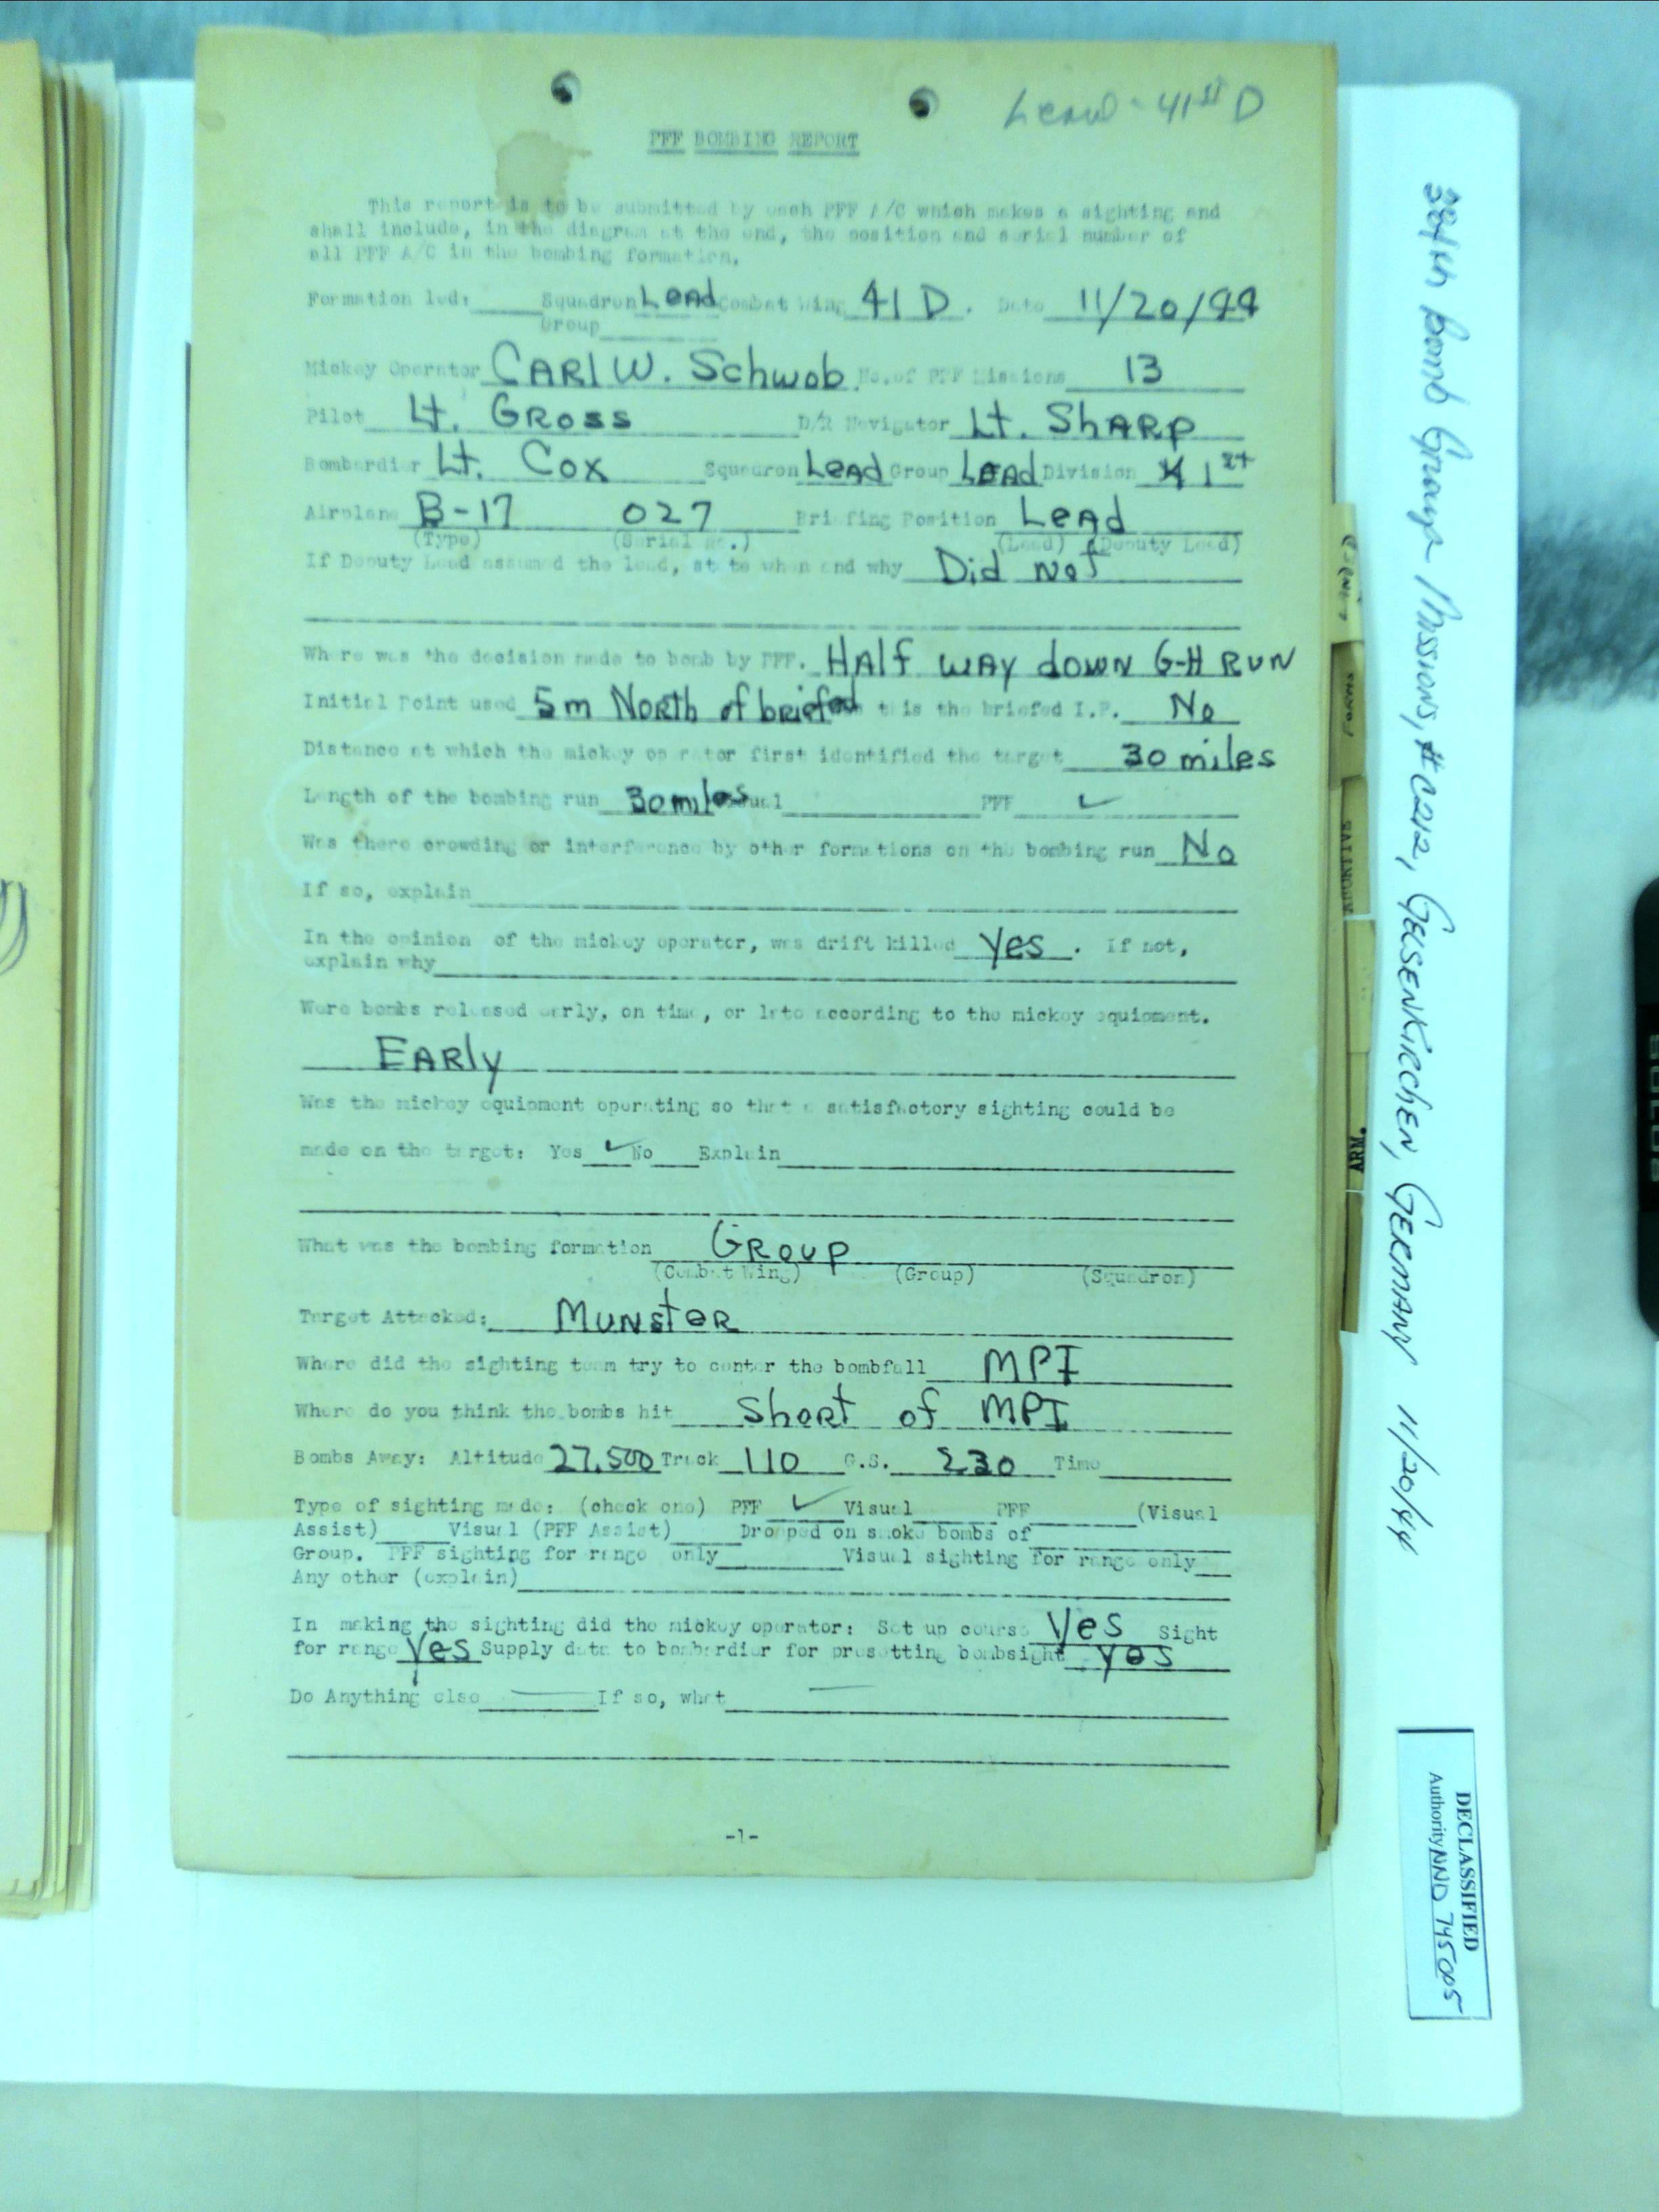 Lead - 41st D
PFF BOMBING REPORT
This report is to be submitted by each PFF A/C which makes a sighting and
shall include, in the diagram at the end, the position and serial number of
all PFF A/C in the bombing formation.
Formation led: ____ Squadron Lead Combat Wing 41 D. Date 11/20/44
Group
Mickey Operator CARl W. Schwob. No. of PFF Missions 13
Pilot Lt. GRoss D/R Navigator Lt. ShARP
Bombardier Lt. Cox Squadron LeAd Group LEAd Division 1st
Airplane B-17 027 Briefing Position LeAd
(Type) (Serial no.) (Lead) (Deputy Lead)
If Deputy Lead assumed the lead, state when and why Did Not
Where was the decision made to bomb by PFF. HAlf wAy down G-H RUN
Initial Point used 5m NoRth of briefed this the briefed I.P. No
Distance at which the mickey operator first identified the target 30 miles
Length of the bombing run 30 miles Visual PFF ✓
Was there crowding or interference by other formations on the bombing run No
If so, explain
In the opinion of the mickey operator, was drift killed yes. If not,
explain why
Were bombs released early, on time, or late according to the mickey equipment.
EARly
Was the mickey equipment operating so that a satisfactory sighting could be
made on the target: Yes ✓ No Explain
What was the bombing formation GRoup
(Combat Wing) (Group) (Squadron)
Target Attacked: MUNsteR
Where did the sighting team try to center the bombfall MPI
Where do you think the bombs hit Short of MPI
Bombs Away: Altitude 27,500 Track 110 G.S. 230 Time
Type of sighting made: (check one) PFF ✓ Visual PFF (Visual
Assist) Visual (PFF Assist) Dropped on smoke bombs of
Group. PFF sighting for range only Visual sighting for range only
Any other (explain)
In making the sighting did the mickey operator: Set up course Yes Sight
for range Yes Supply data to bombardier for presetting bombsight yes
Do Anything else — If so, what —
-1-
384th Bomb Group Missions, #C212, GELSENKIRCHEN, GERMANY 11/20/44
FORMS
ABORTIVE
ARM.
DECLASSIFIED
Authority NND 745005